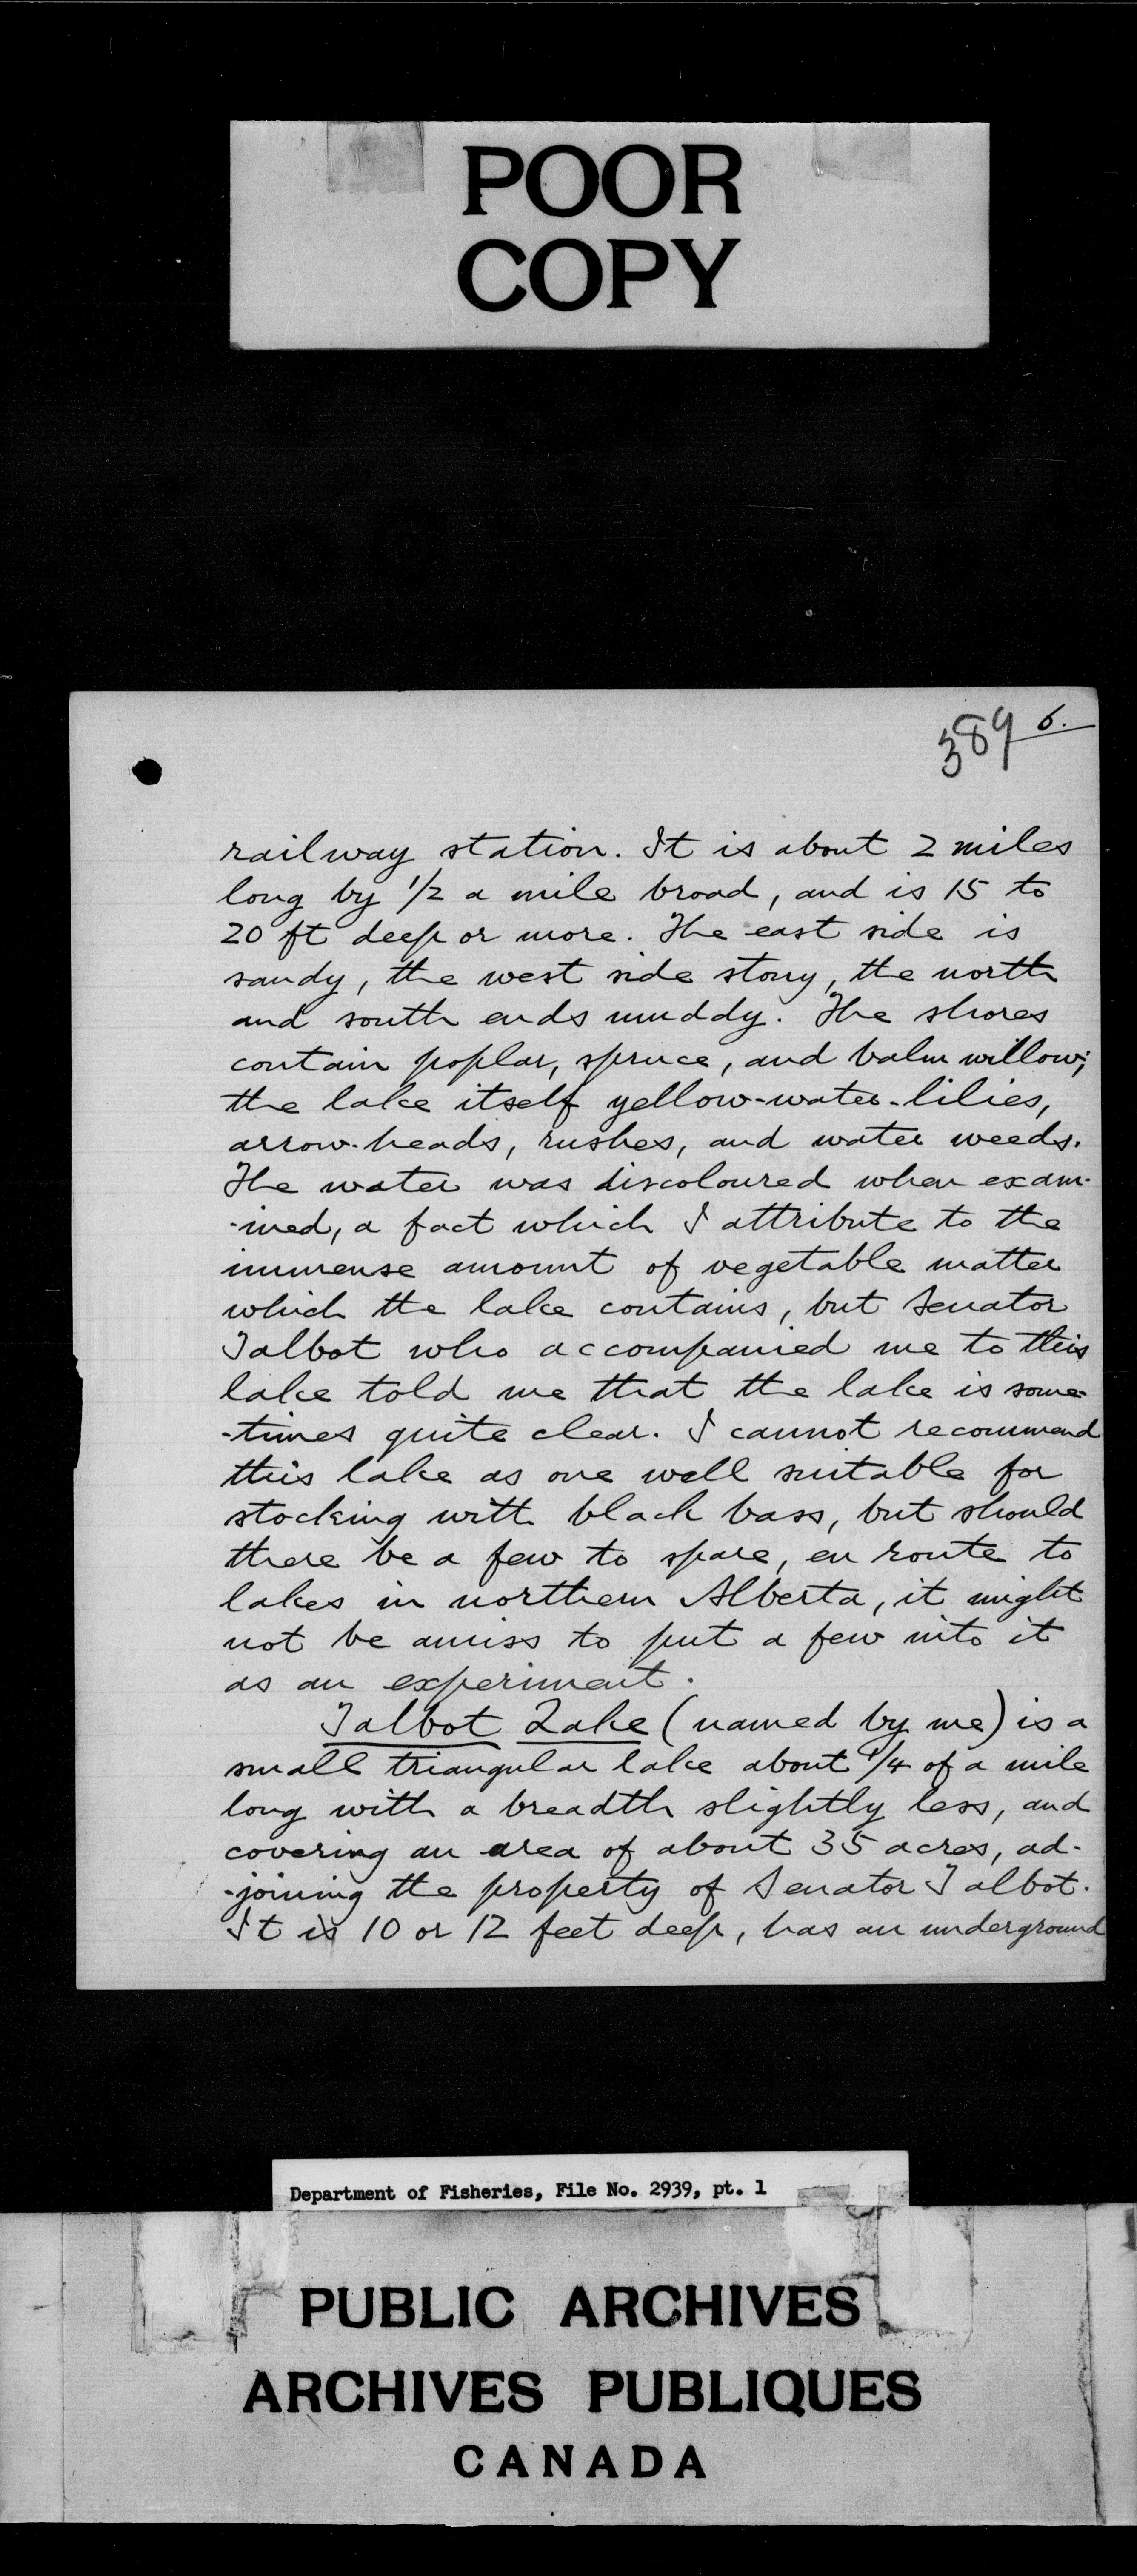 POOR
COPY
389 6.
railway station. It is about 2 miles
long by 1/2 a mile broad, and is 15 to
20 ft deep or more. The east side is
sandy, the west side stony, the north
and south ends muddy. The shores
contain poplar, spruce, and balm willow;
the lake itself yellow-water-lilies,
arrow-heads, rushes, and water weeds.
The water was discoloured when exam-
-ined, a fact which I attribute to the
immense amount of vegetable matter
which the lake contains, but Senator
Talbot who accompanied me to this
lake told me that the lake is some-
-times quite clear. I cannot recommend
this lake as one well suitable for
stocking with black bass, but should
there be a few to spare, en route to
lakes in northern Alberta, it might
not be amiss to put a few into it
as an experiment.
Talbot Lake (named by me) is a
small triangular lake about 1/4 of a mile
long with a breadth slightly less, and
covering an area of about 35 acres, ad-
-joining the property of Senator Talbot.
It is 10 or 12 feet deep, has an underground
Department of Fisheries, File No. 2939, pt. 1
PUBLIC ARCHIVES
ARCHIVES PUBLIQUES
CANADA